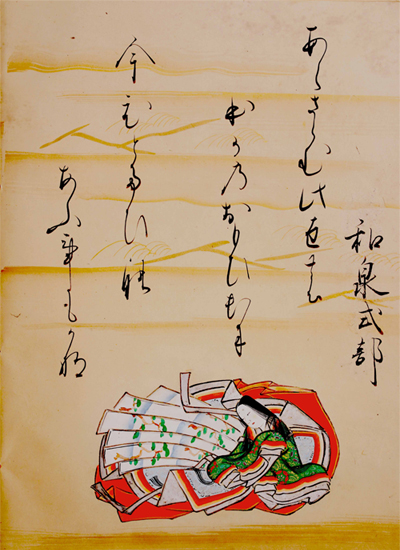 和泉式部
あらさらむ此世の
ほかのおもひ出に
今ひとたひの
あふ事もかな